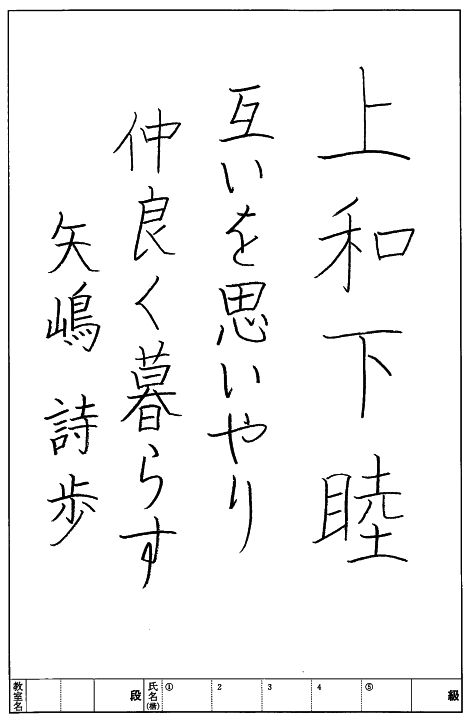 上和下睦
互いを思いやり
仲良く暮らす
矢嶋 詩歩
教室名 段 氏名(横) ① 2 3 4 ⑤ 級